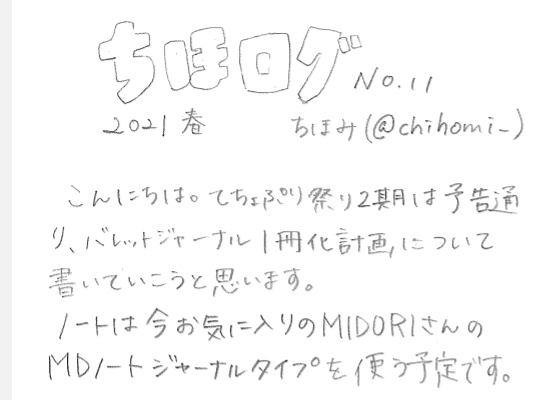 ちほログ No.11
2021 春 ちほみ(@chihomi_)
こんにちは。てちょぷり祭り2期は予告通
り、バレットジャーナル1冊化計画、について
書いていこうと思います。
ノートは今お気に入りのMIDORIさんの
MDノートジャーナルタイプを使う予定です。